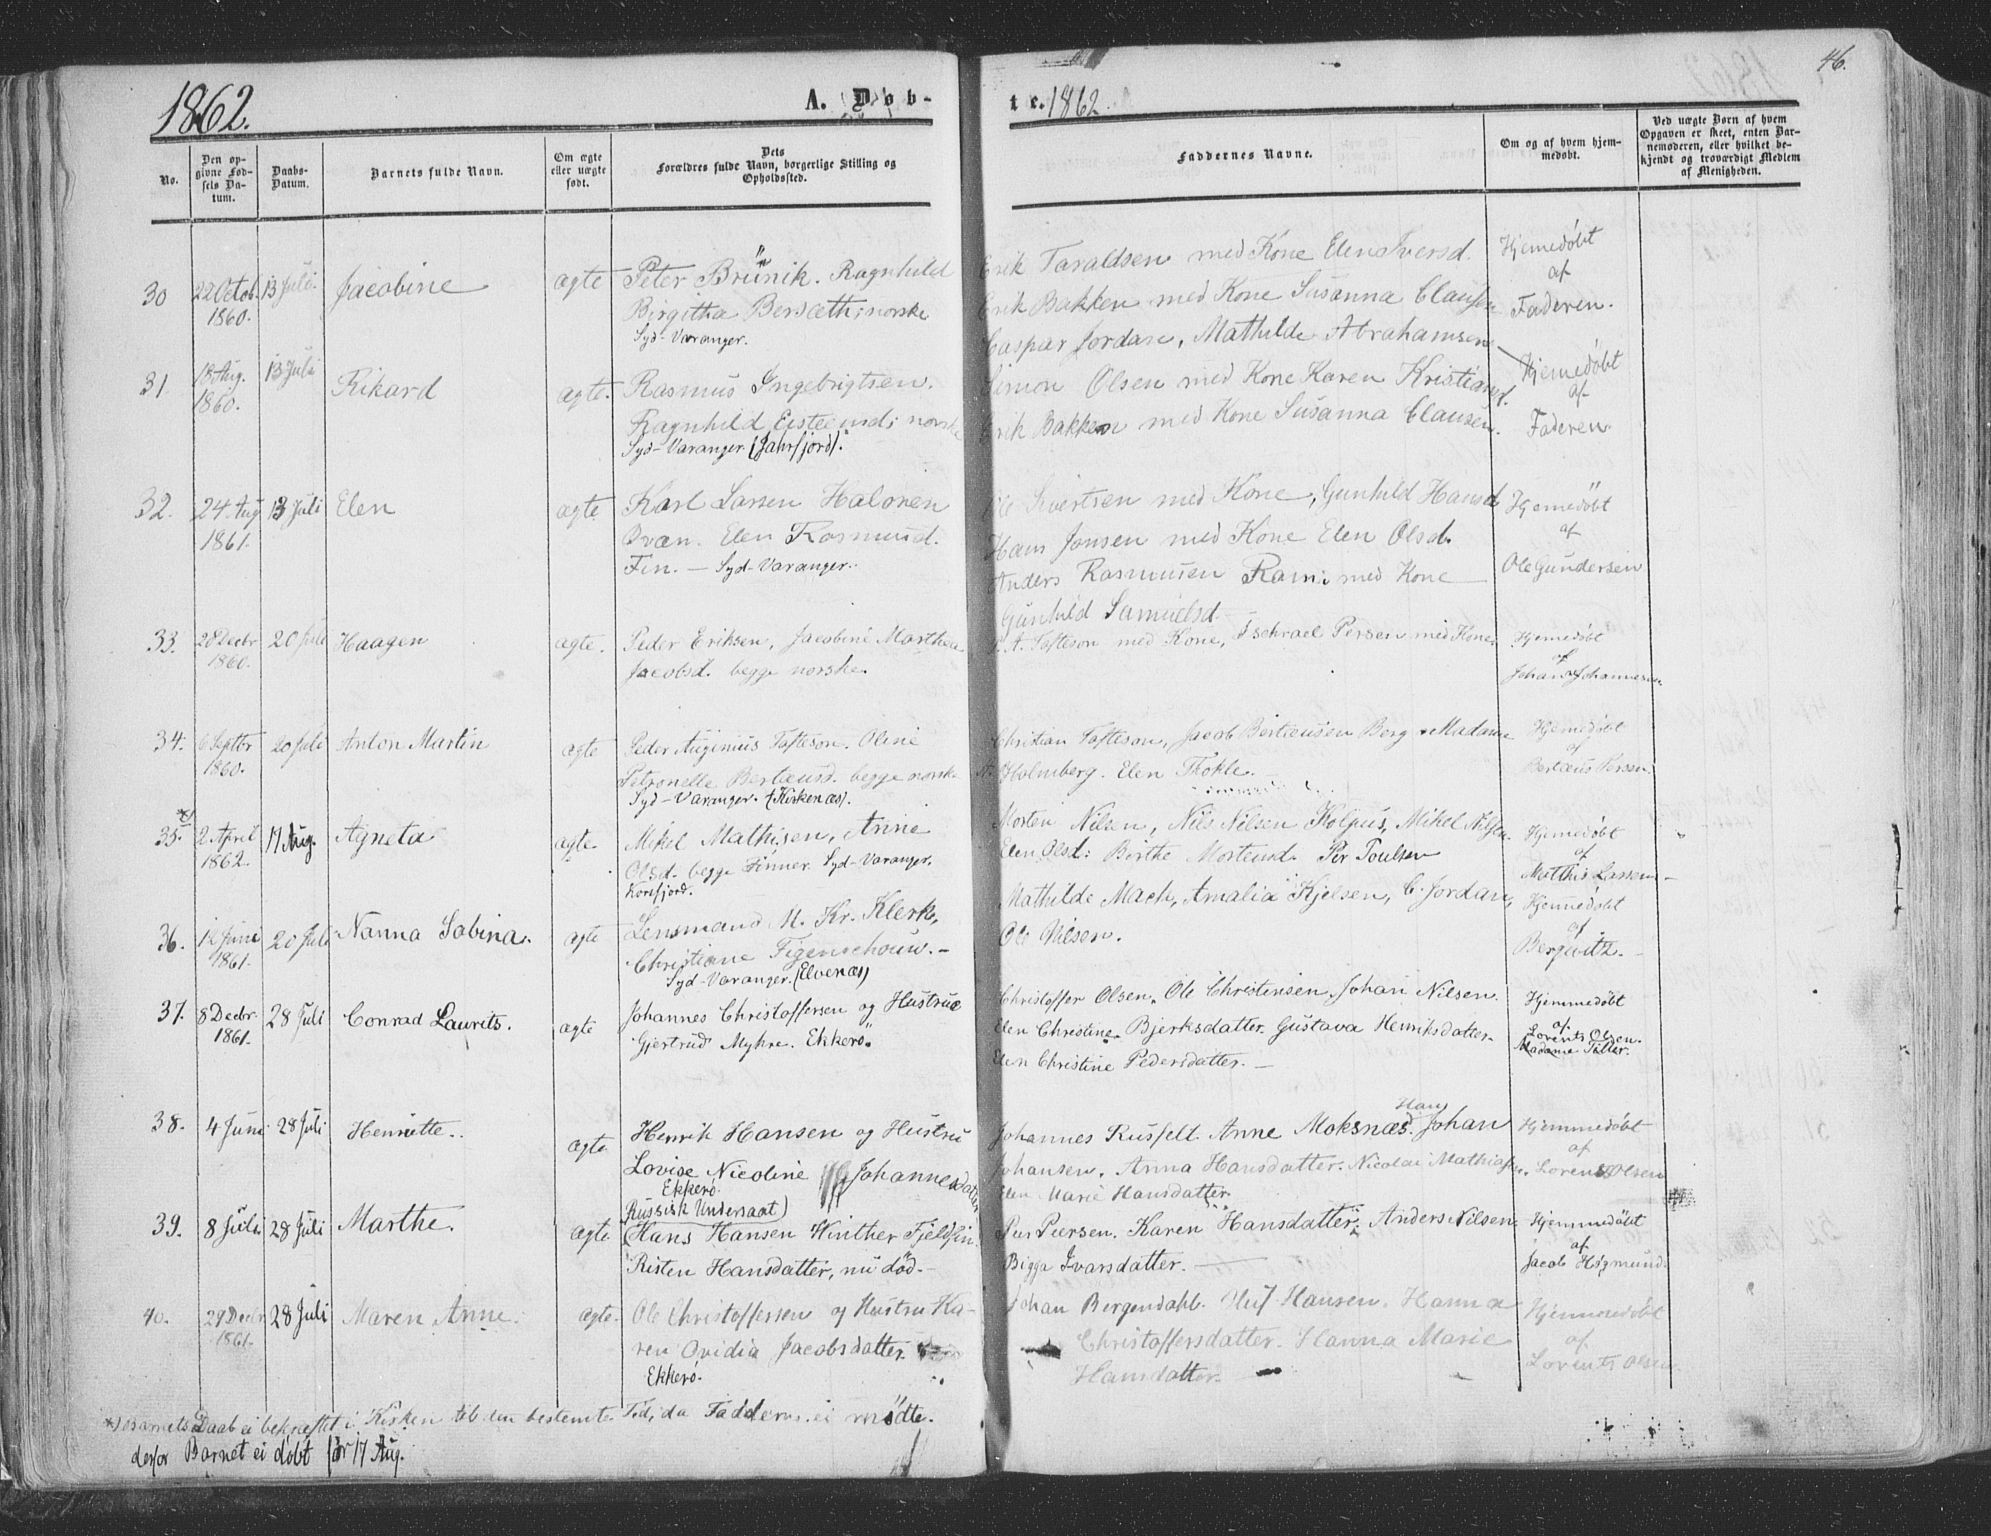 1862.
A. Døb-
te. 1862
46.
No.
Den op-
givne Fød-
sels Da-
tum.
Daabs-
Datum.
Barnets fulde Navn.
Om ægte
eller uægte
født.
Dets
Forældres fulde Navn, borgerlige Stilling og
Opholdssted.
Faddernes Navne.
Om og af hvem hjem-
medøbt.
Ved uægte Børn af hvem
Opgaven er skeet, enten Bar-
nemoderen, eller hvilket be-
kjendt og troværdigt Medlem
af Menigheden.
30
22 Octob.
1860.
13 Juli.
Jacobine
ægte
Peter Brünik. Ragnhild
Birgitha Bersæth; norske
Syd-Varanger.
Erik Taraldsen med Kone Elen Iversd.
Erik Bakken med Kone Susanna Clausen
Caspar Jordan, Mathilde Abrahamsen
Hjemedøbt
af
Faderen.
31.
18 Aug.
1860.
13 Juli
Rikard
ægte.
Rasmus Ingebrigtsen.
Ragnhild Eisteinsd; norske
Syd-Varanger (Jahrfjord).
Simon Olsen med Kone Karen Kristiansd.
Erik Bakken med Kone Susanna Clausen.
Hjemedøbt
af
Faderen
32.
24 Aug
1861.
13 Juli
Elen
ægte
Karl Larsen Halonen
Qvæn. Elen Rasmusd.
Fin. — Syd-Varanger.
Ole Sivertsen med Kone, Gunhild Hansd
Hans Jonsen med Kone Elen Olsd.
Anders Rasmusen Rami med Kone
Gunhild Samuelsd
Hjemedøbt
af
Ole Gundersen
33.
28 Decbr
1860.
20 Juli
Haagen
ægte.
Peder Eriksen, Jacobine Marthea
Jacobsd. begge norske.
P. A. Tofteson med Kone, Ischrael Persen med Kone.
Hjemedøbt
af
Johans Johannesen
34.
6 Septbr
1860.
20 Juli
Anton Martin
ægte
Peder Auginius Tofteson. Oline
Petronelle Bertæusd. begge norske
Syd-Varanger. (Kirkenæs).
Christian Tofteson, Jacob Bertæusen Berg Madame
Holmberg. Elen Thokle.
Hjemedøbt
af
Bertæus Persen.
35. *)
2 April
1862.
17 Aug.
Agneta
ægte.
Mikel Mathisen, Anne
Olsd. begge Finner. Syd-Varanger.
Korsfjord.
Morten Nilsen, Nils Nilsen Kolpus, Mikel Nilsen.
Elen Olsd: Birthe Mortensd. Per Poulsen
Hjemedøbt
af
Matthis Larssen
36.
12 Juni
1861.
20 Juli
Nanna Sabina.
ægte
Lensmand M. Kr. Klerk,
Christiane Figenschouw. –
Syd-Varanger. (Elvenæs)
Mathilde Mach, Amalia Kjelsen, C. Jordan,
Ole Nilsen.
Hjemmedøbt
af
Bergwitz.
37.
8 Decbr.
1861.
28 Juli
Conrad Laurits.
ægte
Johannes Christoffersen og Hustrue
Gjertrud Myhre. Ekkerø.
Christoffer Olsen. Ole Christensen, Johan Nilsen.
Elen Christine Bjerksdatter. Gustava Henriksdatter.
Elen Christine Pedersdatter. —
Hjemmedøbt
af
Lorents Olsen.
Madame Tiller.
38.
4 Juni
28 Juli
Henriette.
ægte
Henrik Hansen og Hustru
Lovise Nicoline Johannesdatter
Ekkerø.
Johannes Kusfelt. Anne Moksnæs. Hans Johan
Johansen. Anna Hansdatter. Nicolai Mathiassen.
Elen Marie Hansdatter.
Hjemmedøbt
af
Lorents Olsen
39.
8 Juli
28 Juli
Marthe.
ægte
(Russisk Undersaat)
Hans Hansen Winther Fjeldfin
Risten Hansdatter, nu død.
Per Piersen. Karen Hansdatter. Anders Nilsen.
Bigga Ivarsdatter. —
Hjemmedøbt
af
Jacob Høgmund.
40.
29 Decbr
1861.
28 Juli
Maren Anne.
ægte.
Ole Christoffersen og Hustru Ka-
ren Ovidia Jacobsdatter.
Ekkerø.
Johan Bergendahl. Huf Hansen. Hanna
Christoffersdatter. Hanna Marie
Hansdatter.
Hjemmedøbt
af
Lorents Olsen.
*) Barnets Daab ei bekræftet i Kirken til den bestemte Tid, da Fadderne ei mødte.
derfor Barnet ei døbt før 17 Aug.